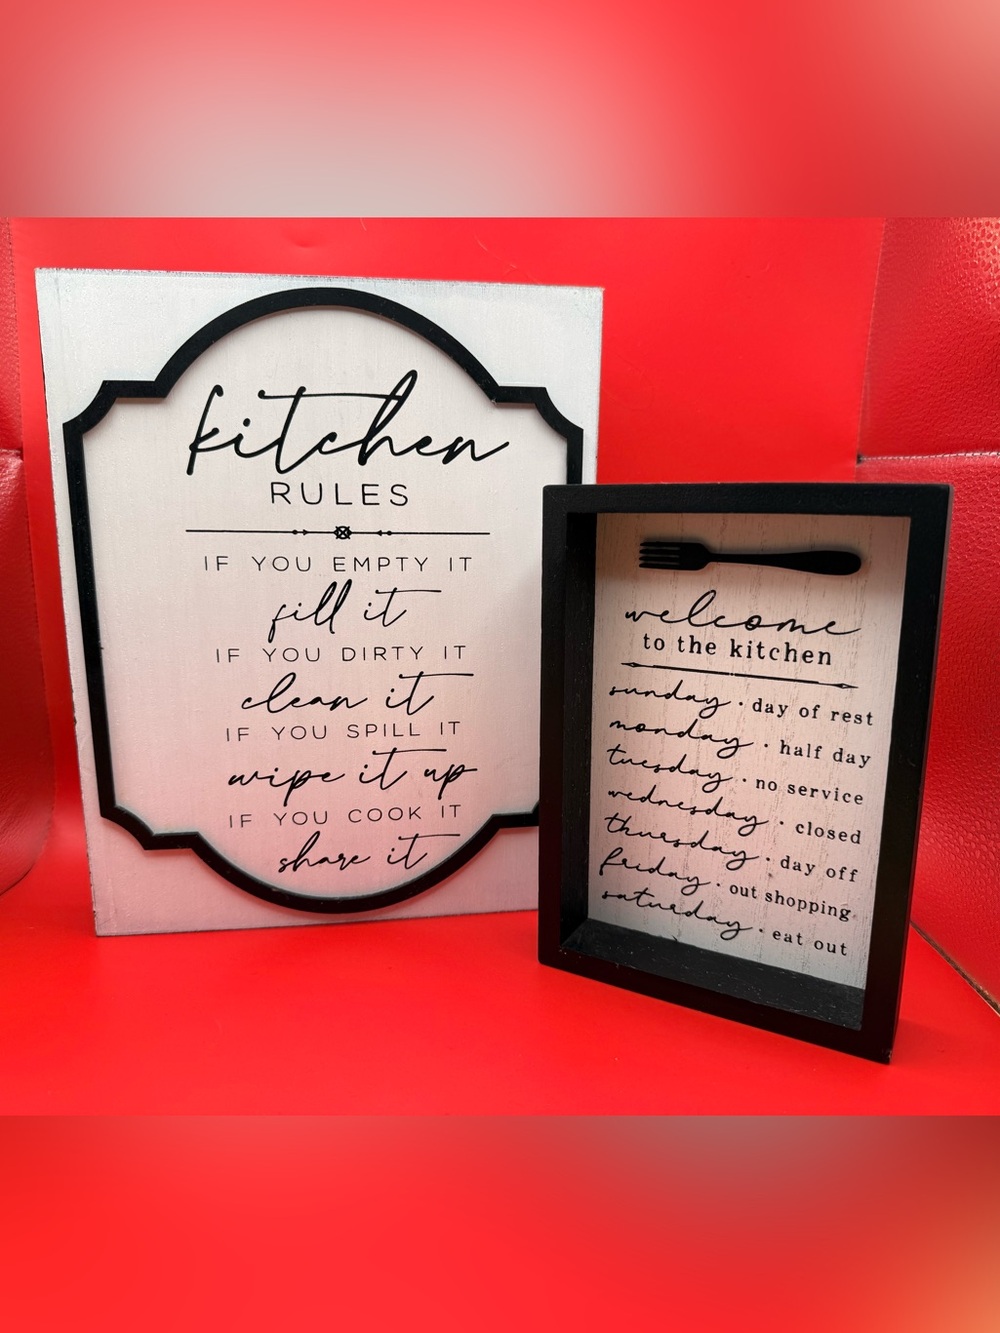 kitchen
RULES
IF YOU EMPTY IT
fill it
IF YOU DIRTY IT
clean it
IF YOU SPILL IT
wipe it up
IF YOU COOK IT
share it
welcome
to the kitchen
sunday · day of rest
monday · half day
tuesday · no service
wednesday · closed
thursday · day off
friday · out shopping
saturday · eat out